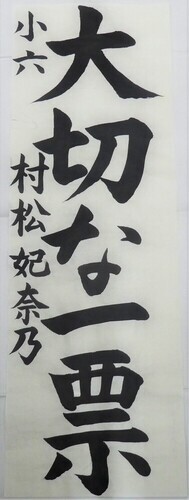 大切な一票
小六
村松妃奈乃